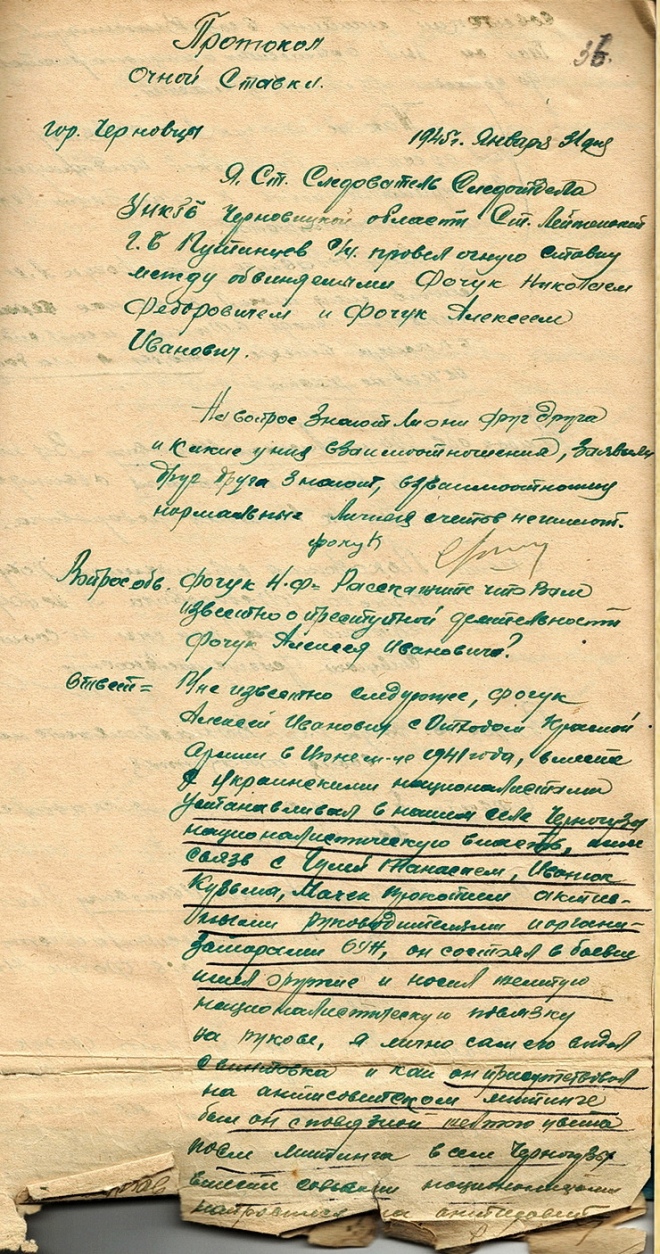 Протокол
36.
Очной Ставки.
гор. Черновцы 1945г. Января 31 дня
Я. Ст. Следователь Следотдела
УНКГБ Черновицкой области Ст. Лейтенант
Г.Б провел очную ставку
между обвиняемыми Фочук Николаем
Федоровичем и Фочук Алексеем
Иванович.
На вопрос Знают ли они друг друга
и какие у них взаимоотношения, Заявили
друг друга Знают, взаимоотношения
нормальные Личных счетов не имеют.
фочук
Вопрос обв. Фочук Н.Ф= Расскажите что Вам
известно о преступной деятельности
Фочук Алексея Ивановича?
Ответ= Мне известно следующее, Фочук
Алексей Иванович с Отходом Красной
Армии в 1941 года, вместе
с украинскими националистами
устанавливал в нашем селе Черногузы
националистическую власть, имел
связь с Танасием, Иванюк
Кузьма, активными
руководителями и организаторами
ОУН, он состоял в боевке
имел оружие и носил желтую
националистическую повязку
на рукове, я лично сам его видел
с винтовка и как он присутствовал
на антисоветском митинге
был он с повязкой желтого цвета
после митинга в селе Черногузы
националистами
на